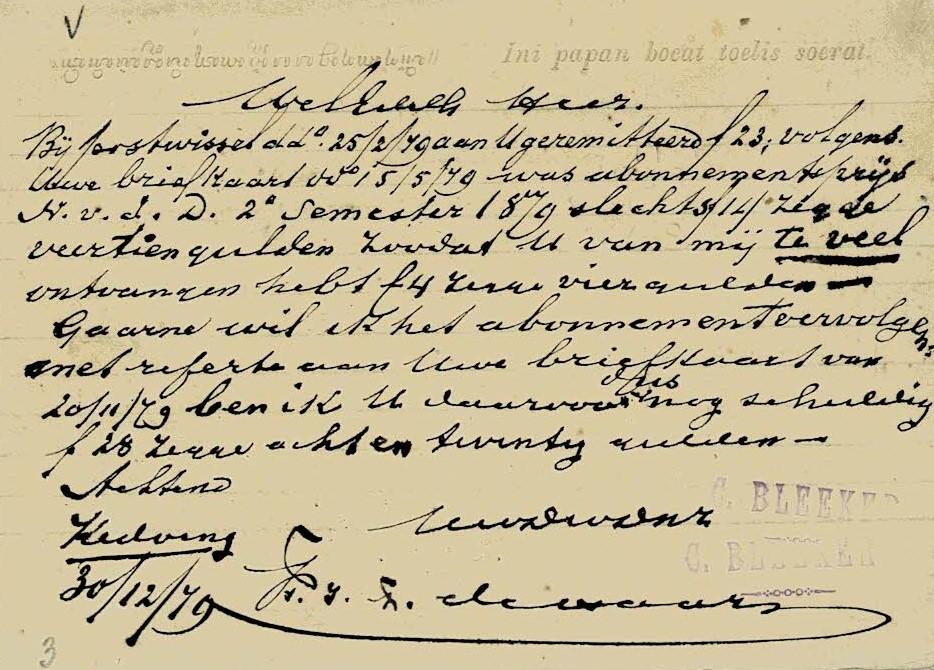 V
Ini papan boeat toelis soerat.
WelEdele Heer.
Bij postwissel dd° 25/2/79 aan U geremitteerd f 23, volgens
Uwe briefkaart dd° 15/5/79 was abonnementsprijs
N. v. d. D. 2e Semester 1879 slechts f 14 zegge
veertien gulden zoodat U van mij te veel
ontvangen hebt f 4 zegge vier gulden —
Gaarne wil ik het abonnement vervolgen
met referte aan Uwe briefkaart van
20/11/79 ben ik U daarvoor dus nog schuldig
f 28 zegge acht en twintig gulden —
Achtend
C. BLEEKER
UwEdwdnr
Kedoeng
C. BLEEKER
30/12/79
3